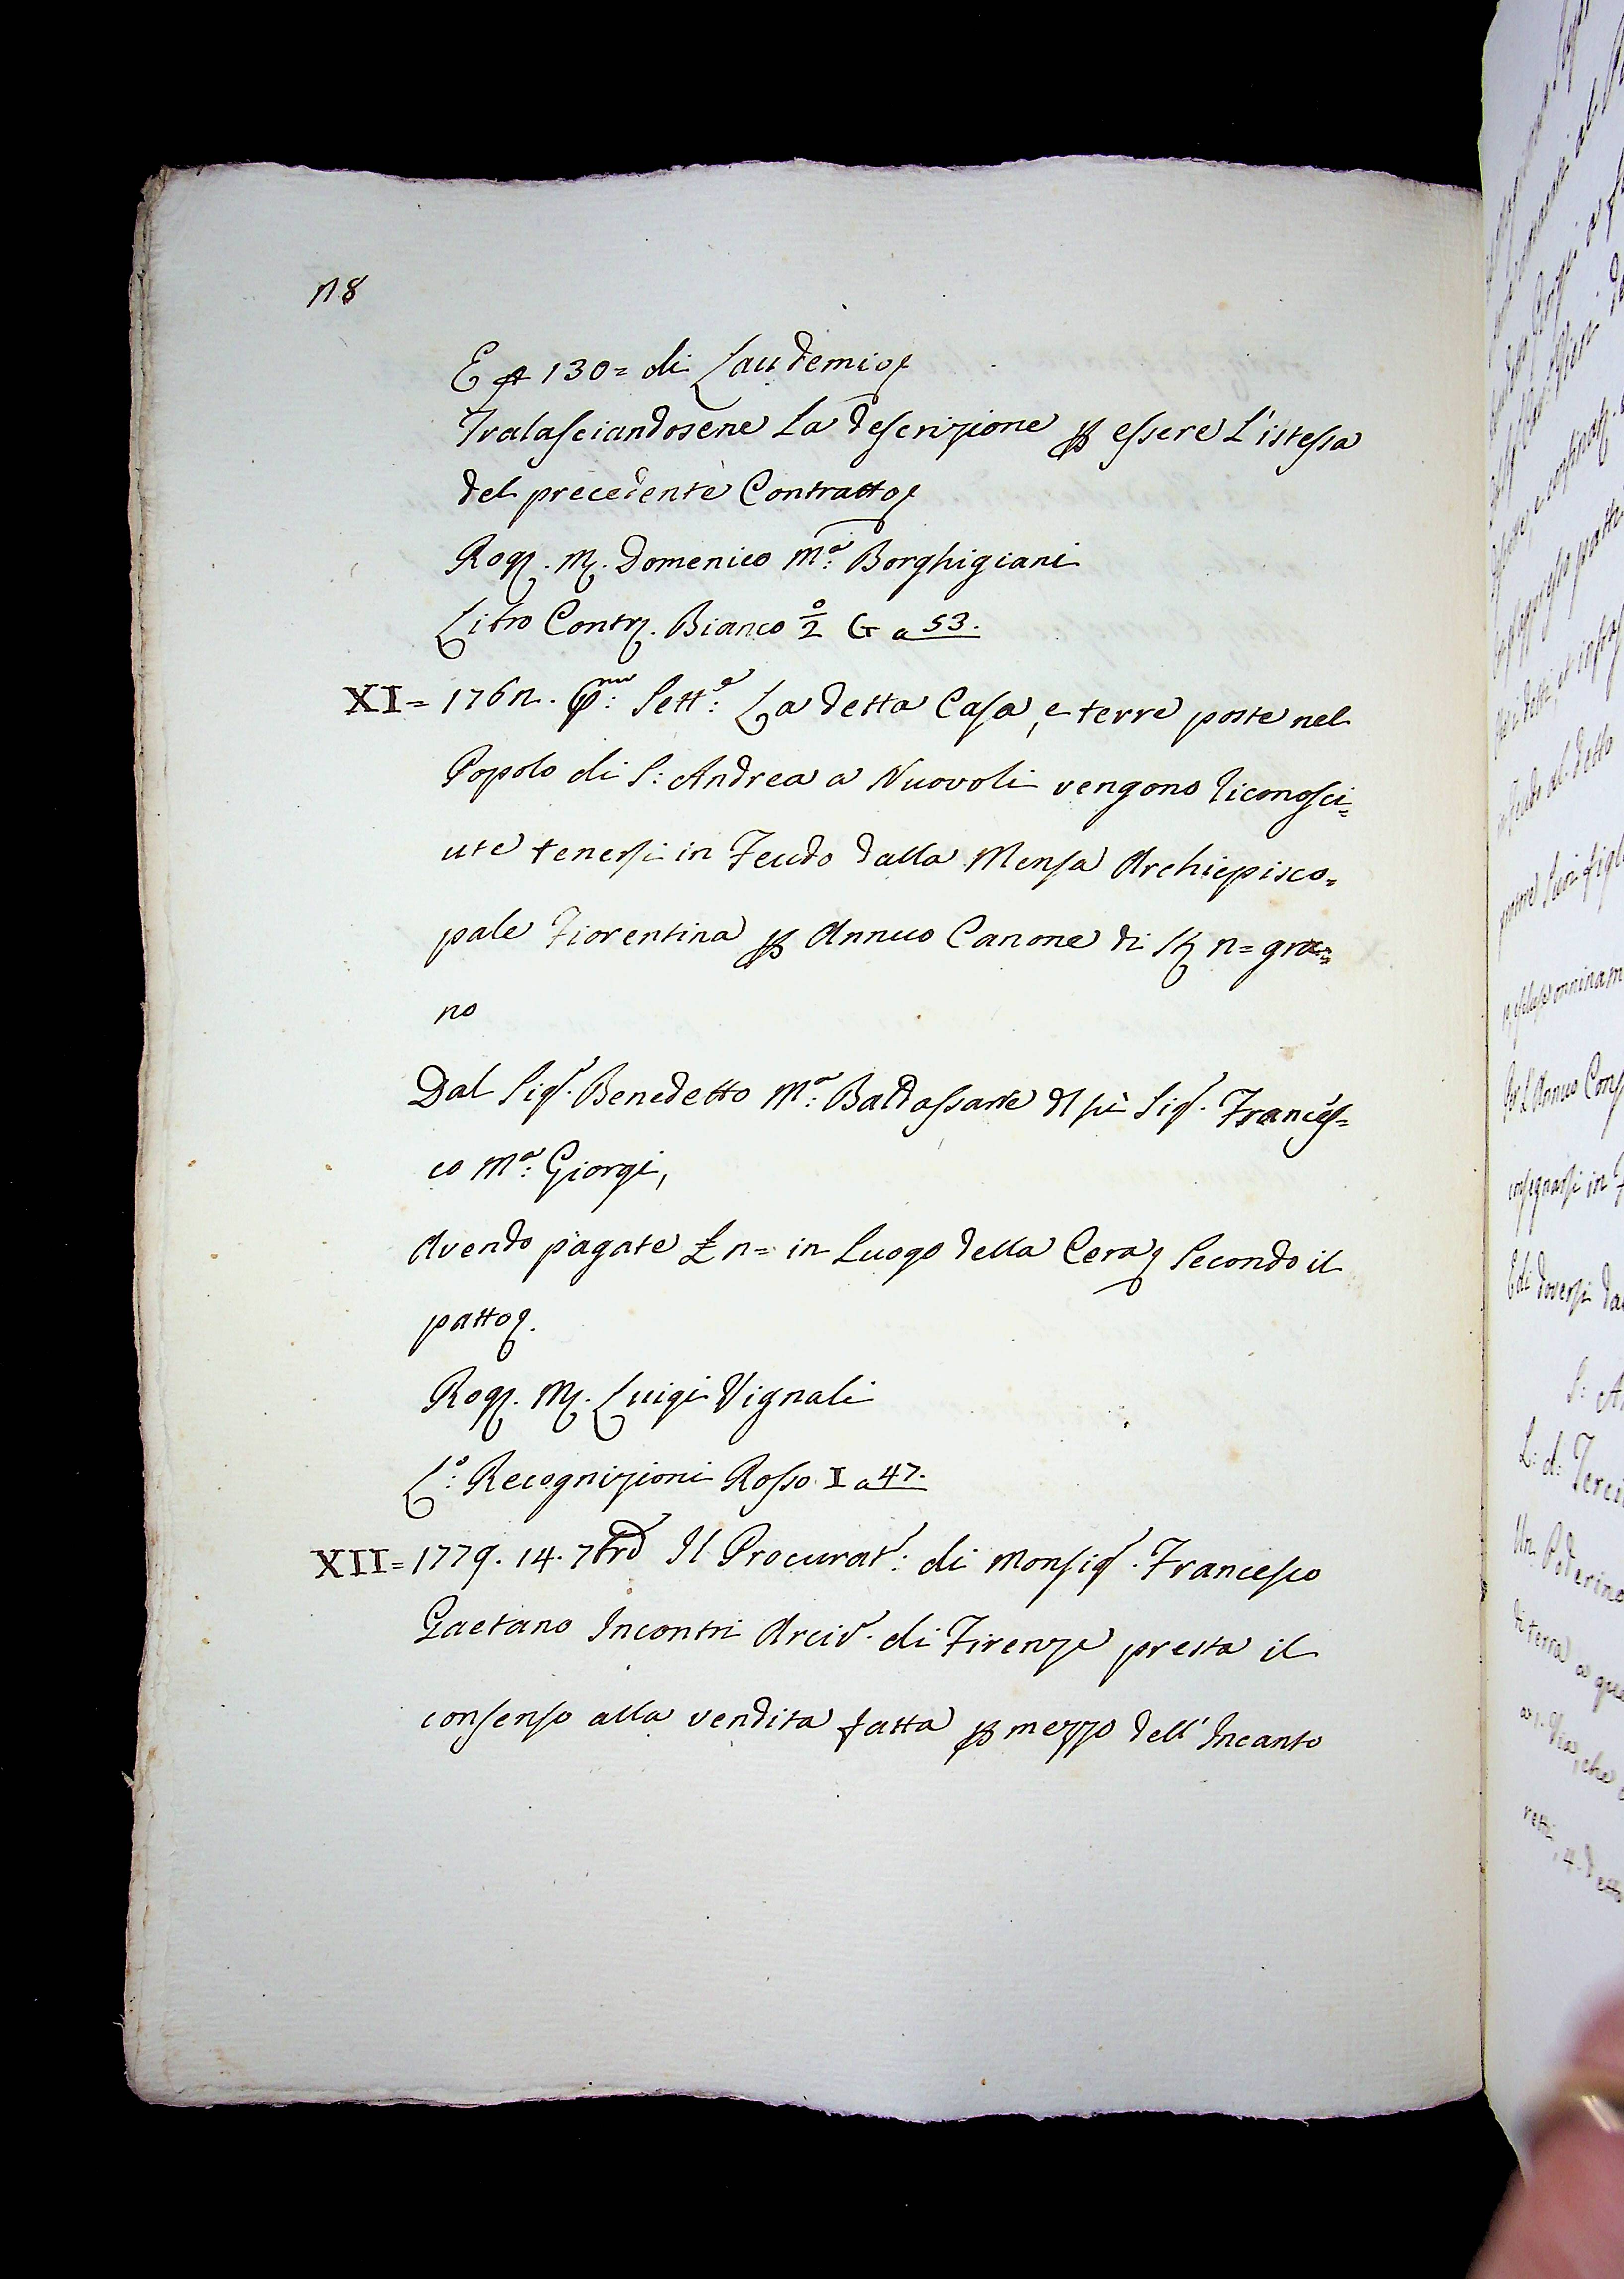 n8
E 130= di Laudemio
Tralasciandosene La descrizione p essere L'istessa
del precedente Contratto
Rog. M. Domenico Mª: Borghigiani
Libro Contr. Bianco 2º G a 53.
XI= 176n. Pmo: Sett.e: La detta Casa, e terre poste nel
Popolo di S: Andrea a Nuovoli vengono riconosci=
ute tenersi in Feudo dalla Mensa Archiepisco=
pale Fiorentina p Annuo Canone di St n= gra=
no
Dal Sigr. Benedetto Mª: Baldassarre dl fù Sigr. Frances=
co Mª: Giorgi,
Avendo pagate £ n= in Luogo della Cera Secondo il
patto.
Rog. M. Luigi Vignali
Lº: Recognizioni Rosso I a 47.
XII= 1779. 14. 7bre Il Procurat.r: di Monsigr. Francesco
Gaetano Incontri Arciv. di Firenze presta il
consenso alla vendita fatta p mezzo dell' Incanto